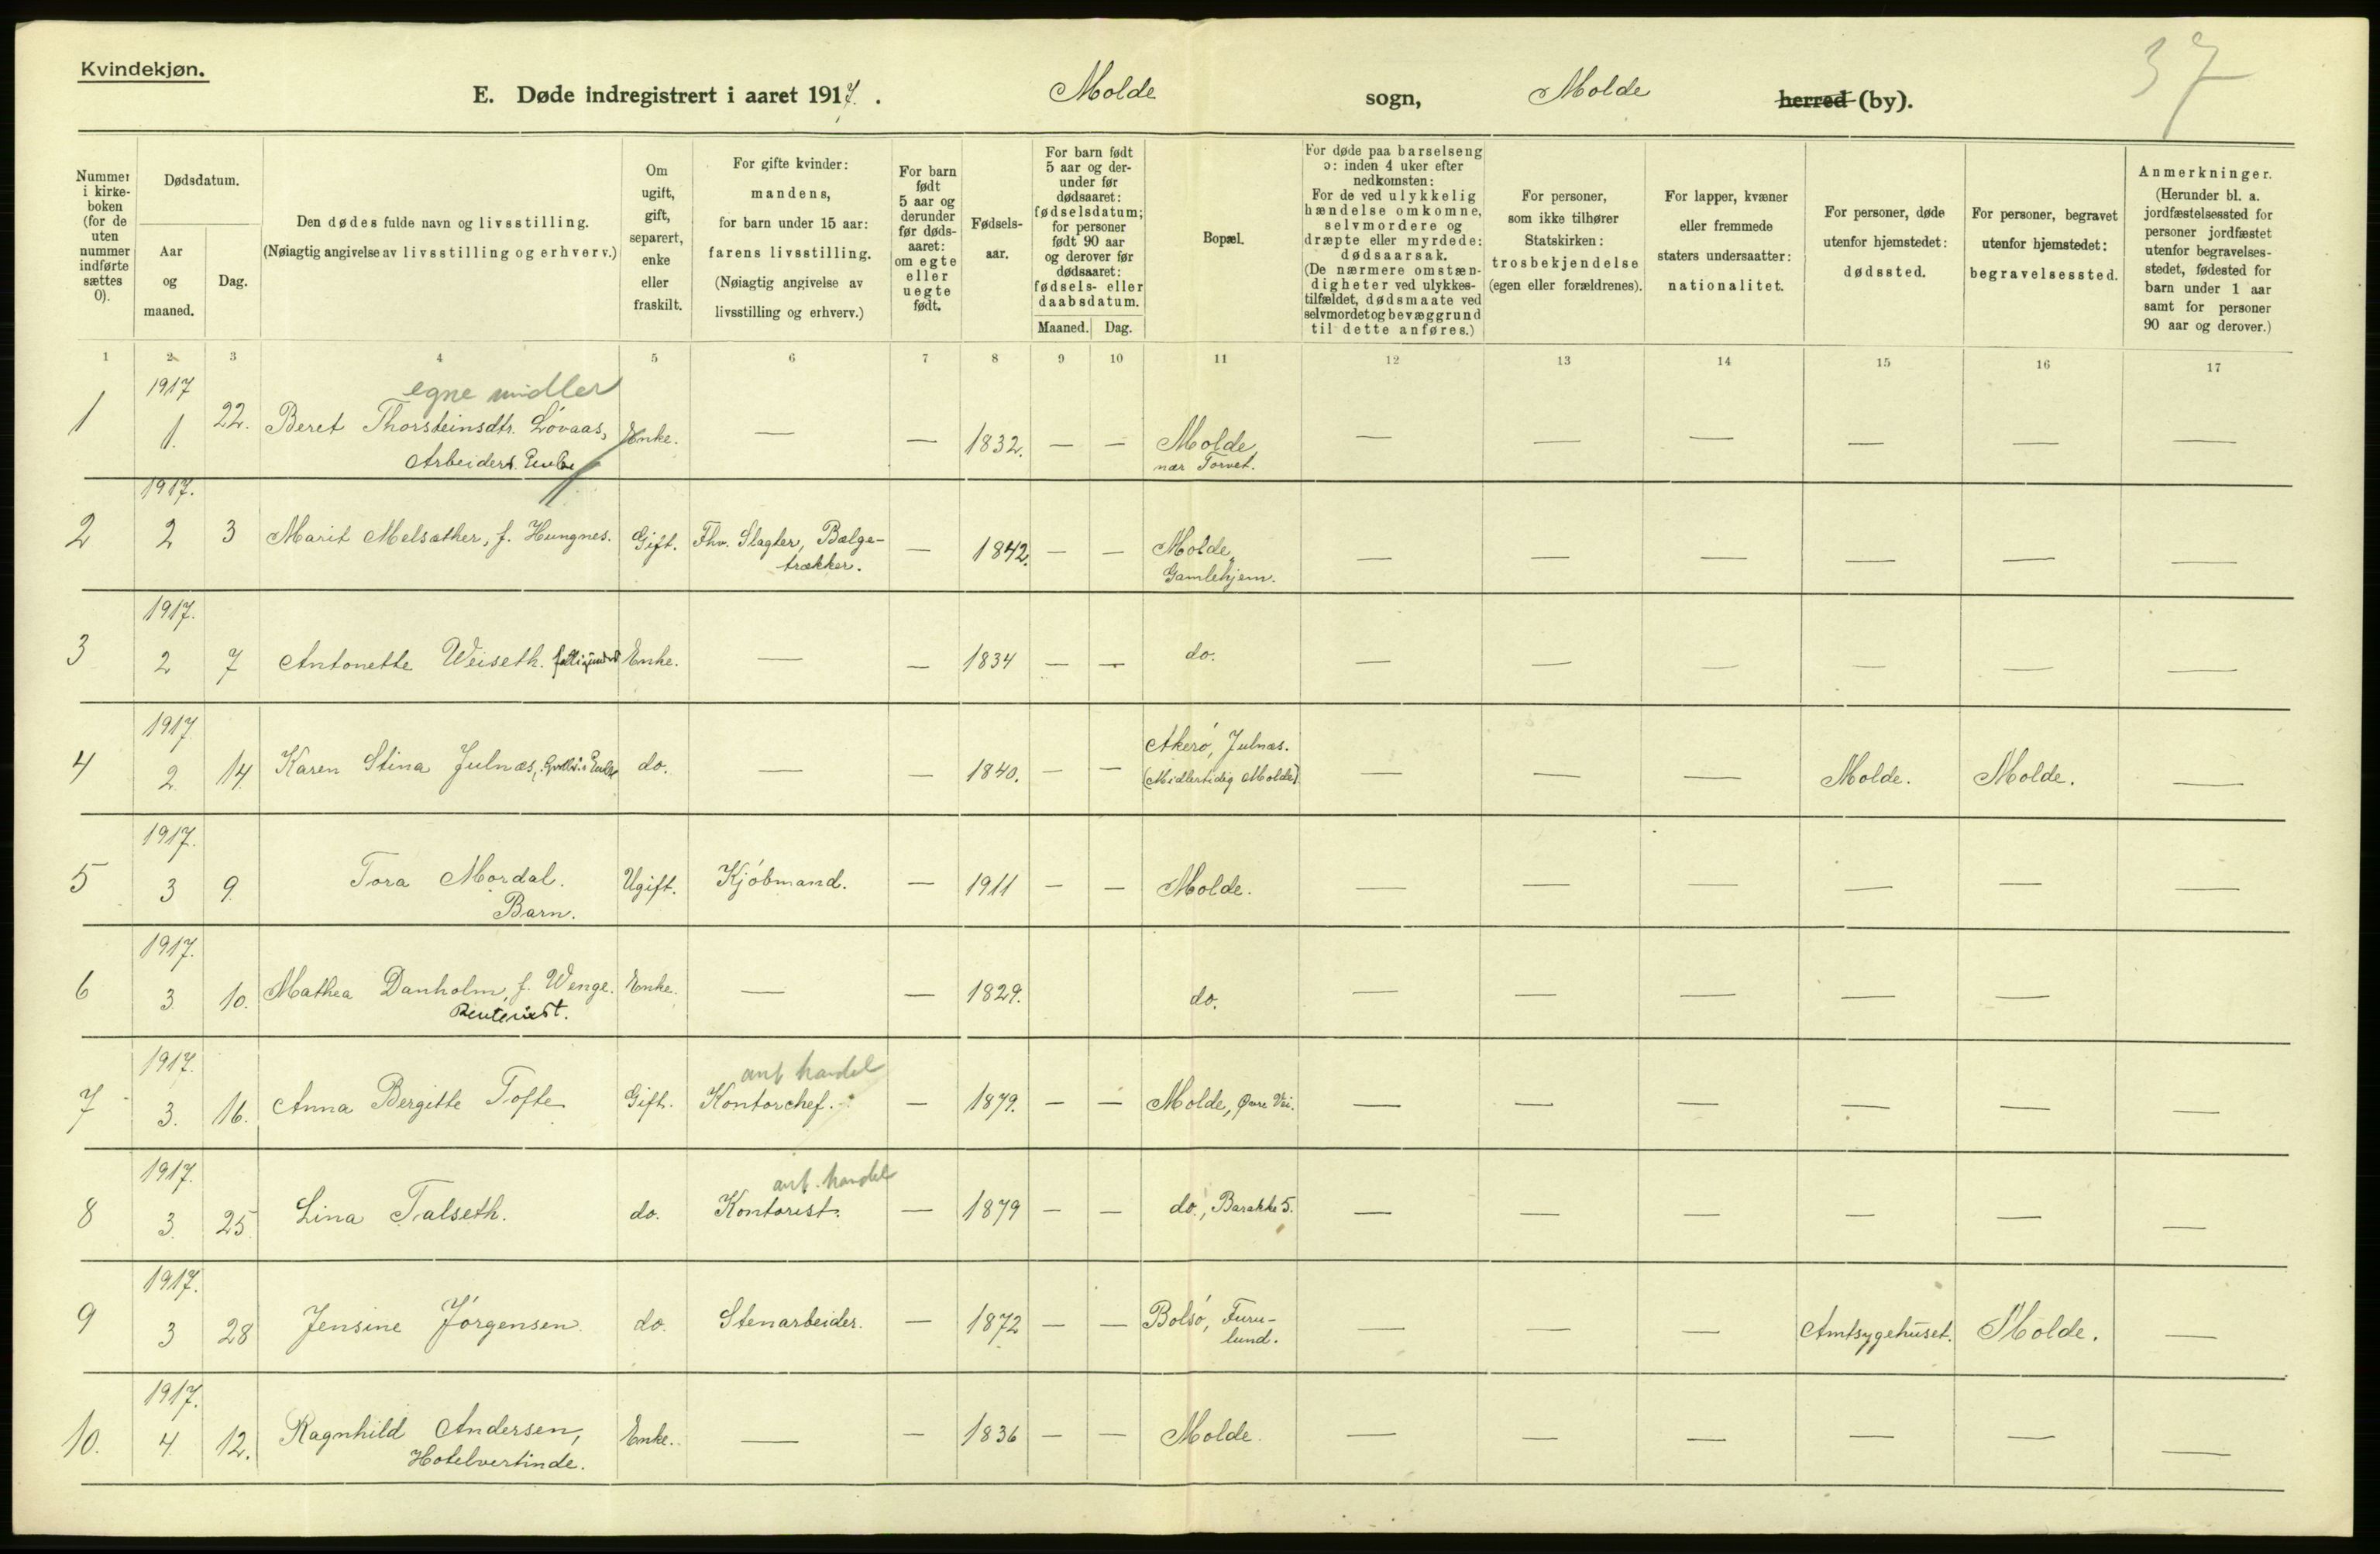 Kvindekjøn.
37
E. Døde indregistrert i aaret 1917. Molde sogn, Molde herred (by).
Nummer i kirkeboken (for de uten nummer indførte sættes 0).
Dødsdatum.
Aar og maaned.
Dag.
Den dødes fulde navn og livsstilling.
(Nøiagtig angivelse av livsstilling og erhverv.)
Om ugift, gift, separert, enke eller fraskilt.
For gifte kvinder: mandens, for barn under 15 aar: farens livsstilling. (Nøiagtig angivelse av livsstilling og erhverv.)
For barn født 5 aar og derunder før dødsaaret: om egte eller uegte født.
Fødselsaar.
For barn født 5 aar og derunder før dødsaaret: fødselsdatum; for personer født 90 aar og derover før dødsaaret: fødsels- eller daabsdatum.
Maaned. Dag.
Bopæl.
For døde paa barselseng ɔ: inden 4 uker efter nedkomsten: For de ved ulykkelig hændelse omkomne, selvmordere og dræpte eller myrdede: dødsaarsak. (De nærmere omstændigheter ved ulykkestilfældet, dødsmaate ved selvmordet og bevæggrund til dette anføres.)
For personer, som ikke tilhører Statskirken: trosbekjendelse (egen eller forældrenes).
For lapper, kvæner eller fremmede staters undersaatter: nationalitet.
For personer, døde utenfor hjemstedet: dødssted.
For personer, begravet utenfor hjemstedet: begravelsessted.
Anmerkninger. (Herunder bl. a. jordfæstelsessted for personer jordfæstet utenfor begravelsesstedet, fødested for barn under 1 aar samt for personer 90 aar og derover.)
1 2 3 4 5 6 7 8 9 10 11 12 13 14 15 16 17
1917 egne midler
1 1. 22. Beret Thorsteinsdtr. Lóvaas, Enke. — — 1832. — — Molde, — — — — — —
Arbeiders Enke nær Torvet.
1917.
2 2 3 Marit Melsæther, f. Hungnes. Gift. Fhv. Slagter, Bælge- — 1842. — — Molde, — — — — — —
trækker. Gamlehjem.
1917.
3 2 7 Antonette Weiseth. Enke. — — 1834 — — do. — — — — — —
1917 Akeró, Julnæs.
4 2. 14. Karen Stina Julnæs, Enke do. — — 1840. — — (Midlertidig Molde). — — — Molde. Molde. —
1917.
5 3 9. Tora Mordal. Ugift. Kjóbmand. — 1911 — — Molde. — — — — — —
Barn.
1917.
6 3. 10. Mathea Danholm, f. Wenge. Enke. — — 1829. do. — — — — —
Renterist.
1917. ant handel
7 3. 16. Anna Bergitte Tofte Gift. Kontorchef. — 1879. — — Molde, Øvre Vei. — — — — — —
1917. ant. handel
8 3. 25 Lina Talseth. do. Kontorist. — 1879 — — do., Barakke 5. — — — — — —
1917.
9 3 28 Jensine Jórgensen. do. Stenarbeider. — 1872 — — Bolsó, Furu- — — — Amtsygehuset. Molde. —
lund.
1917.
10. 4. 12. Ragnhild Andersen, Enke. — — 1836 — — Molde. — — — — — —
Hotelvertinde.